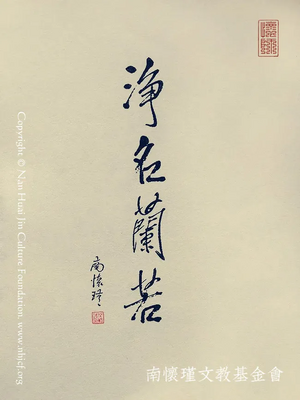 淨名蘭若
南懷瑾
Copyright © Nan Huai Jin Culture Foundation, www.nhjcf.org
南懷瑾文教基金會